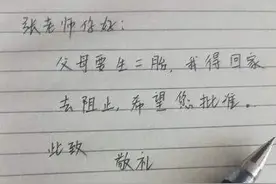 张老师你好:
父母要生二胎,我得回家
去阻止,希望您批准。
此致
敬礼